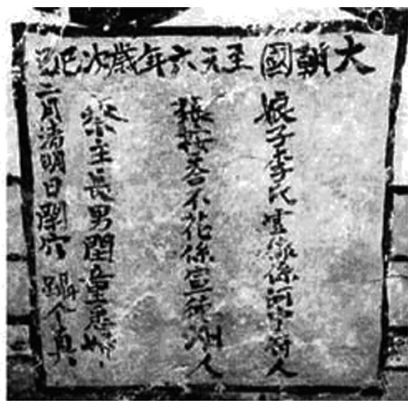 大朝國至元六年歲次己巳
娘子李氏雲線係河中府人
張按答不花係宣德洲人
祭主長男閏童悉婦
二月清明日閉穴个真